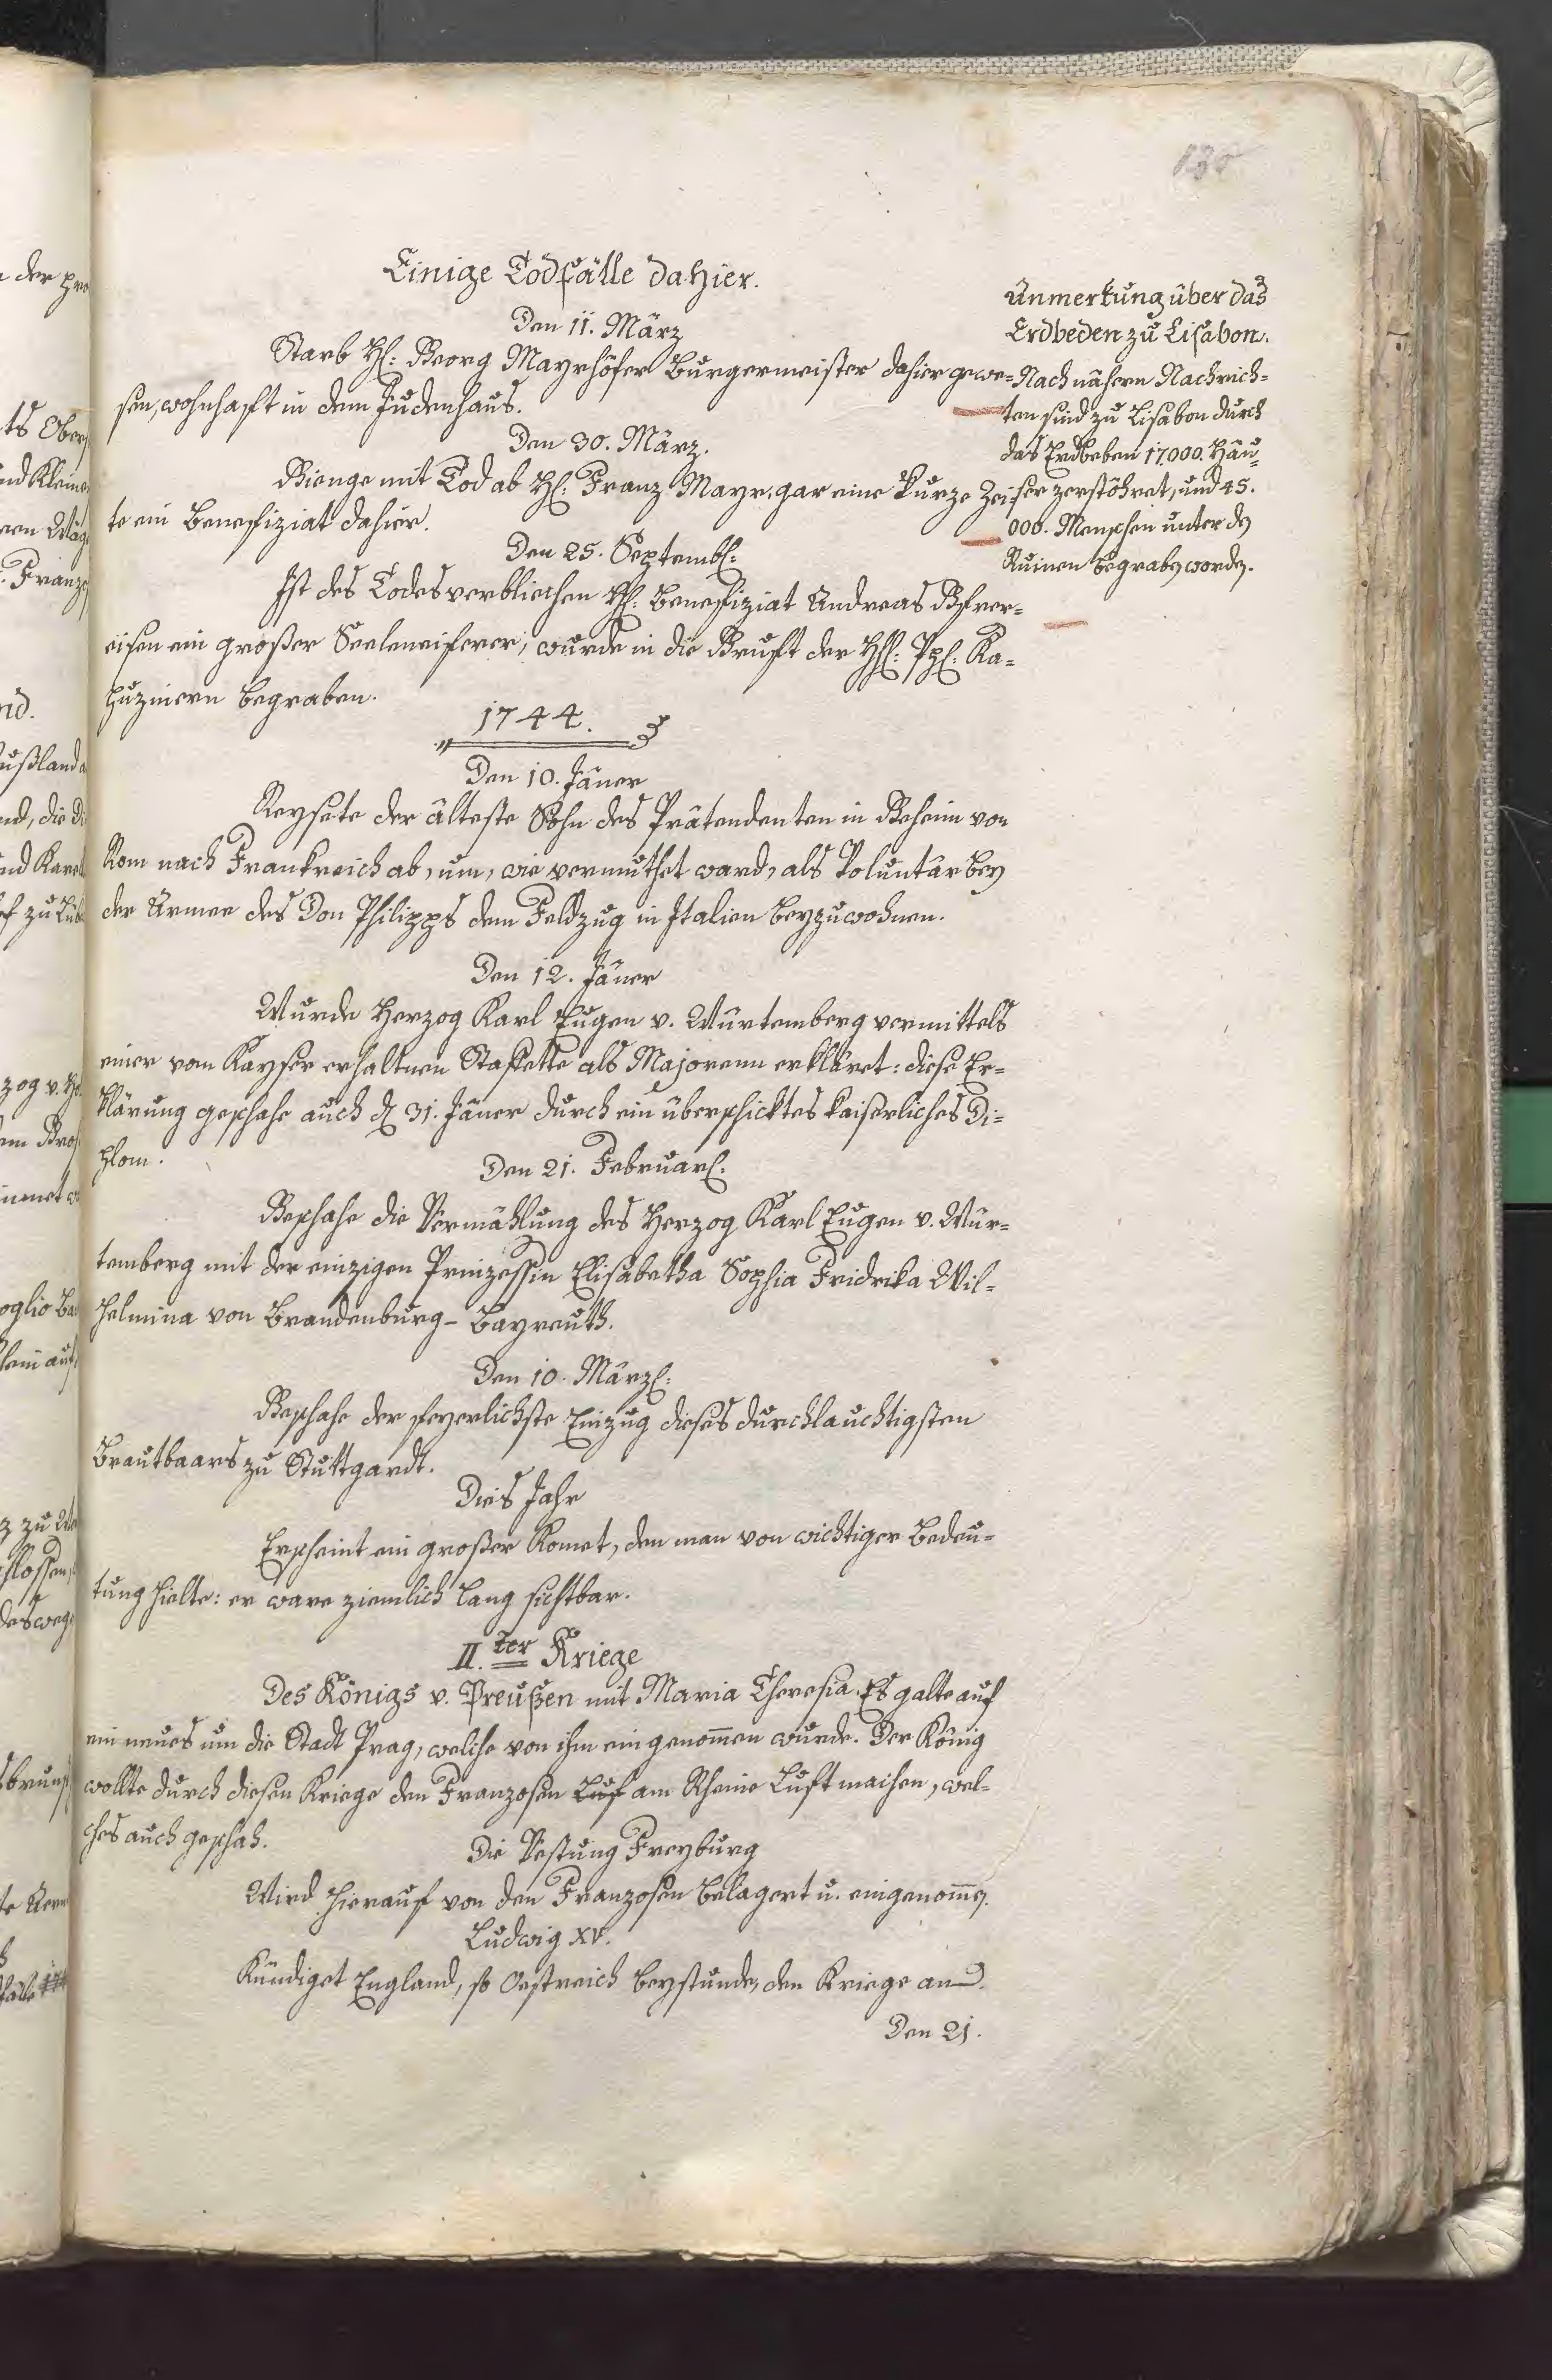 130
Einige Todfälle dahier.
Den 11. März
Starb H: Georg Mayrhöfer Burgermeister dahier gewe=
sen, wohnhafft in dem Judenhaus.
Den 30. März.
Gienge mit Tod ab H: Franz Mayr, gar eine kurze Zei
te ein Benefiziat dahier.
Den 25. Septemb:
Ist des Todes verbliechen H: Benefiziat Andreas
eisen ein großer Seeleneiferer, wurde in die Gruft der HH: PP: Ka=
puzinern begraben.
Anmerkung über das
Erdbeden zu Lisabon.
Nach nähern Nachrich=
ten sind zu Lisabon durch
das Erdbeben 17000. Häu=
ser zerstöhret, und 45.
000. Menschen unter den
Ruinen begraben worden.
1744.
Den 10. Jäner
Reysete der älteste Sohn des Prätendenten in Geheim von
Rom nach Frankreich ab, um, wie vermuthet ward, als Voluntär bey
der Armee des Don Philipps dem Feldzug in Italien beyzuwohnen.
Den 12. Jäner
Wurde Herzog Karl Eugen v. Würtemberg vermittels
einer vom Kayser erhaltnen Staffette als Majorenn erkläret: diese Er=
klärung geschahe auch d 31. Jäner durch ein überschicktes kaiserliches Di=
plom.
Den 21. Februar.
Geschahe die Vermählung des Herzog Karl Eugen v. Wür=
temberg mit der einzigen Prinzessin Elisabetha Sophia Fridrika Wil=
helmina von Brandenburg- Bayreuth.
Den 10. März:
Geschahe der feyerlichste Einzug dieses durchlauchtigsten
Brautbaars zu Stuttgardt.
Dies Jahr
Erscheint ein großer Komet, den man von wichtiger Bedeu=
tung hielte: er ware ziemlich lang sichtbar.
II.ter Kriege
Des Königs v. Preußen mit Maria Theresia. Es galte auf
ein neues um die Stadt Prag, welche von ihm eingenommen wurde. Der König
wollte durch diesen Kriege den Franzosen Luf am Rheine Luft machen, wel=
ches auch geschah.
Die Vestung Freyburg
Wird hierauf von den Franzosen belagert u. eingenommen.
Ludwig XV.
Kündiget England, so Oestreich beystunde, den Kriege an
Den 21.